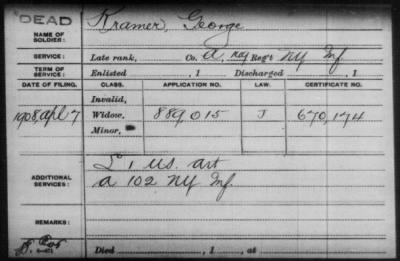 DEAD
Kramer, George
NAME OF SOLDIER:
SERVICE: Late rank, Co. A, Reg't NY Inf
TERM OF SERVICE: Enlisted , 1 Discharged , 1
DATE OF FILING. CLASS. APPLICATION NO. LAW. CERTIFICATE NO.
Invalid,
1908, Apl 7 Widow, 889015 J 670,174
Minor,
ADDITIONAL SERVICES:
L 1 US. art
A 102 NY Inf.
REMARKS:
Died , 1 , at